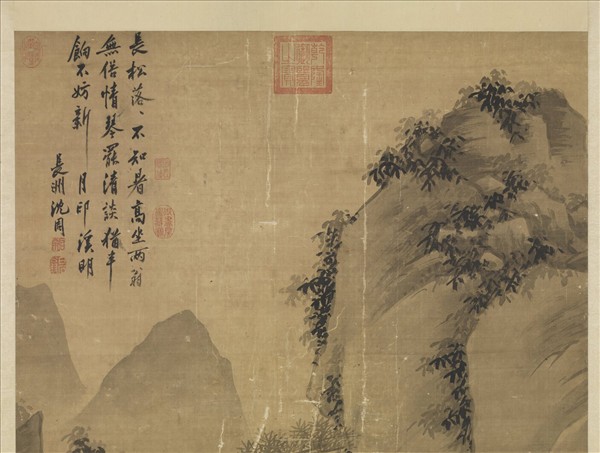 長松落、不知暑高坐兩翁
無俗情琴罷清談猶半
餉不妨新月印溪明
長洲沈周